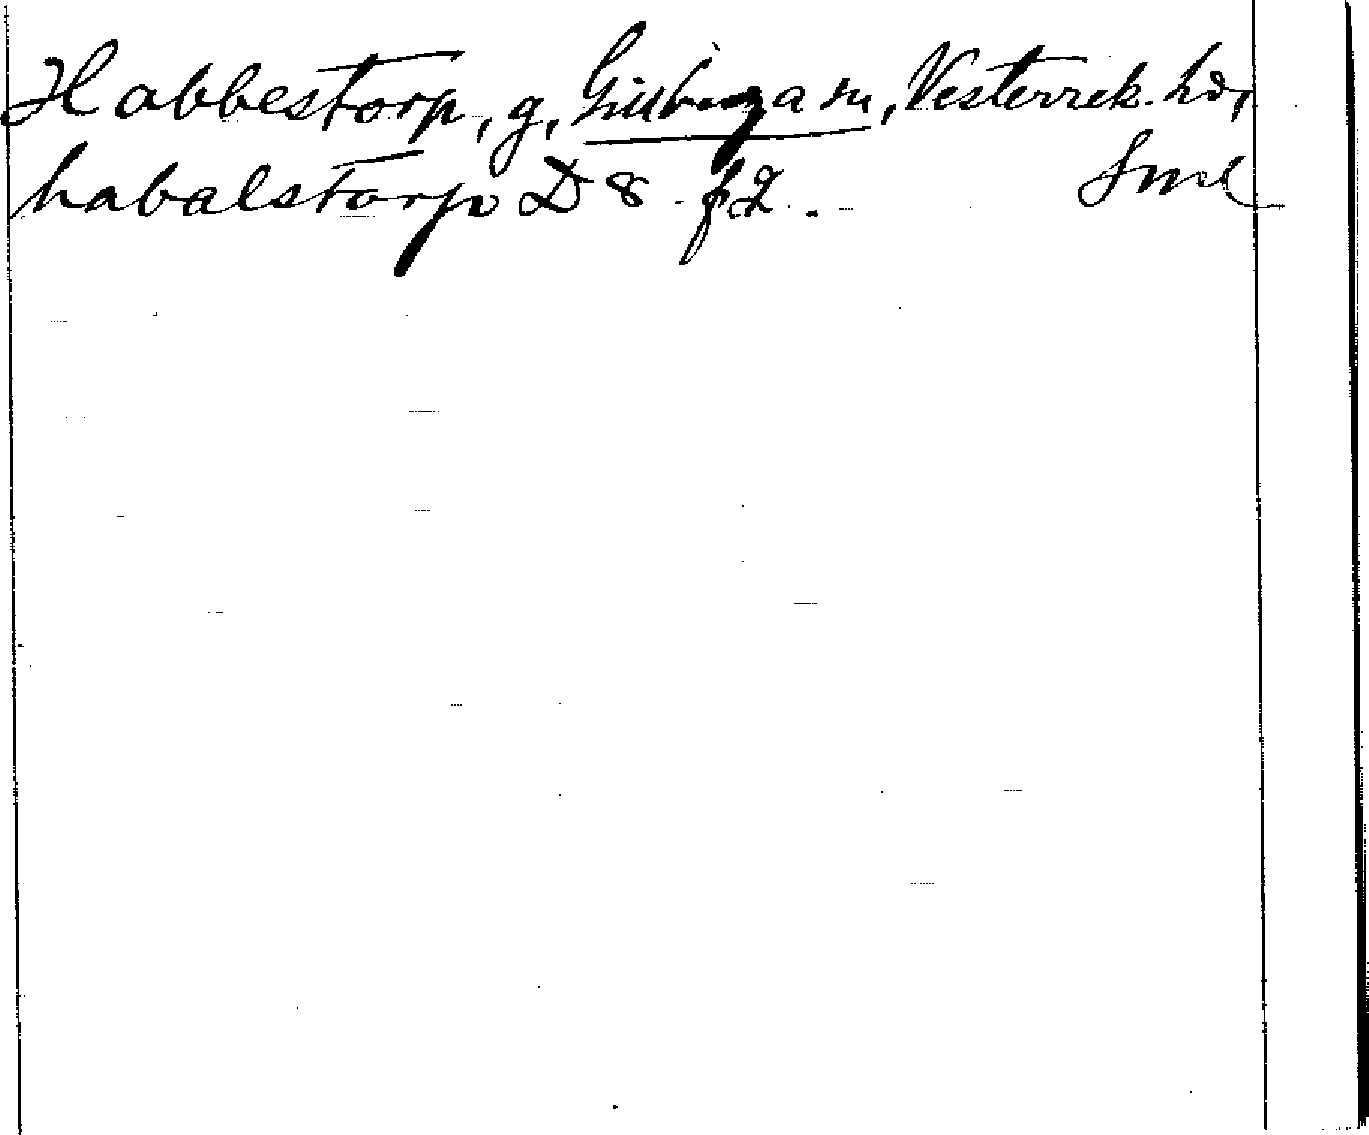 Habbestorp, g, Gissberga sn, Vesterrek. hd,
habalstorp D 8 f 2. Sml